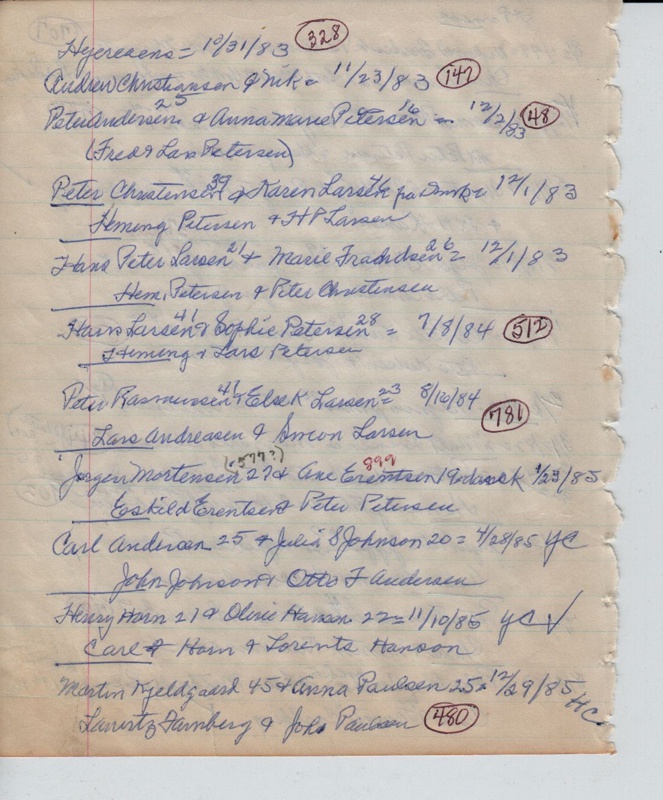 Hyereaens = 10/31/83 328
Andrew Christiansen & Nik = 11/23/83 142
Peter Andersen 25 & Anna Marie Petersen 16 = 12/2/83 48
(Fred & Lars Petersen)
Peter Christensen 39 & Karen Lars = 12/1/83
Heming Petersen & H P Larsen
Hans Peter Larsen 21 & Marie Frandsen 26 = 12/1/83
Hem. Petersen & Peter Christensen
Hans Larsen 41 & Sophie Petersen 28 = 7/8/84 512
Heming & Lars Petersen
Peter Rasmussen 41 & Else K Larsen 23 = 8/16/84
781
Lars Andreasen & Simon Larsen
(-577?)
899
Jorgen Mortensen 27 & Ane Erentsen 19 1/23/85
Eskild Erentsen & Peter Petersen
Carl Andersen 25 & Julia S Johnson 20 = 4/28/85 YC
John Johnson & Otto F Andersen
Henry Horn 27 & Olivie Hansen 22 = 11/10/85 YC ✓
Carl Horn & Lorents Hanson
Martin Kjeldgaard 45 & Anna Paulsen 25 = 12/29/85 HC
Lauritz & John Paulsen 480